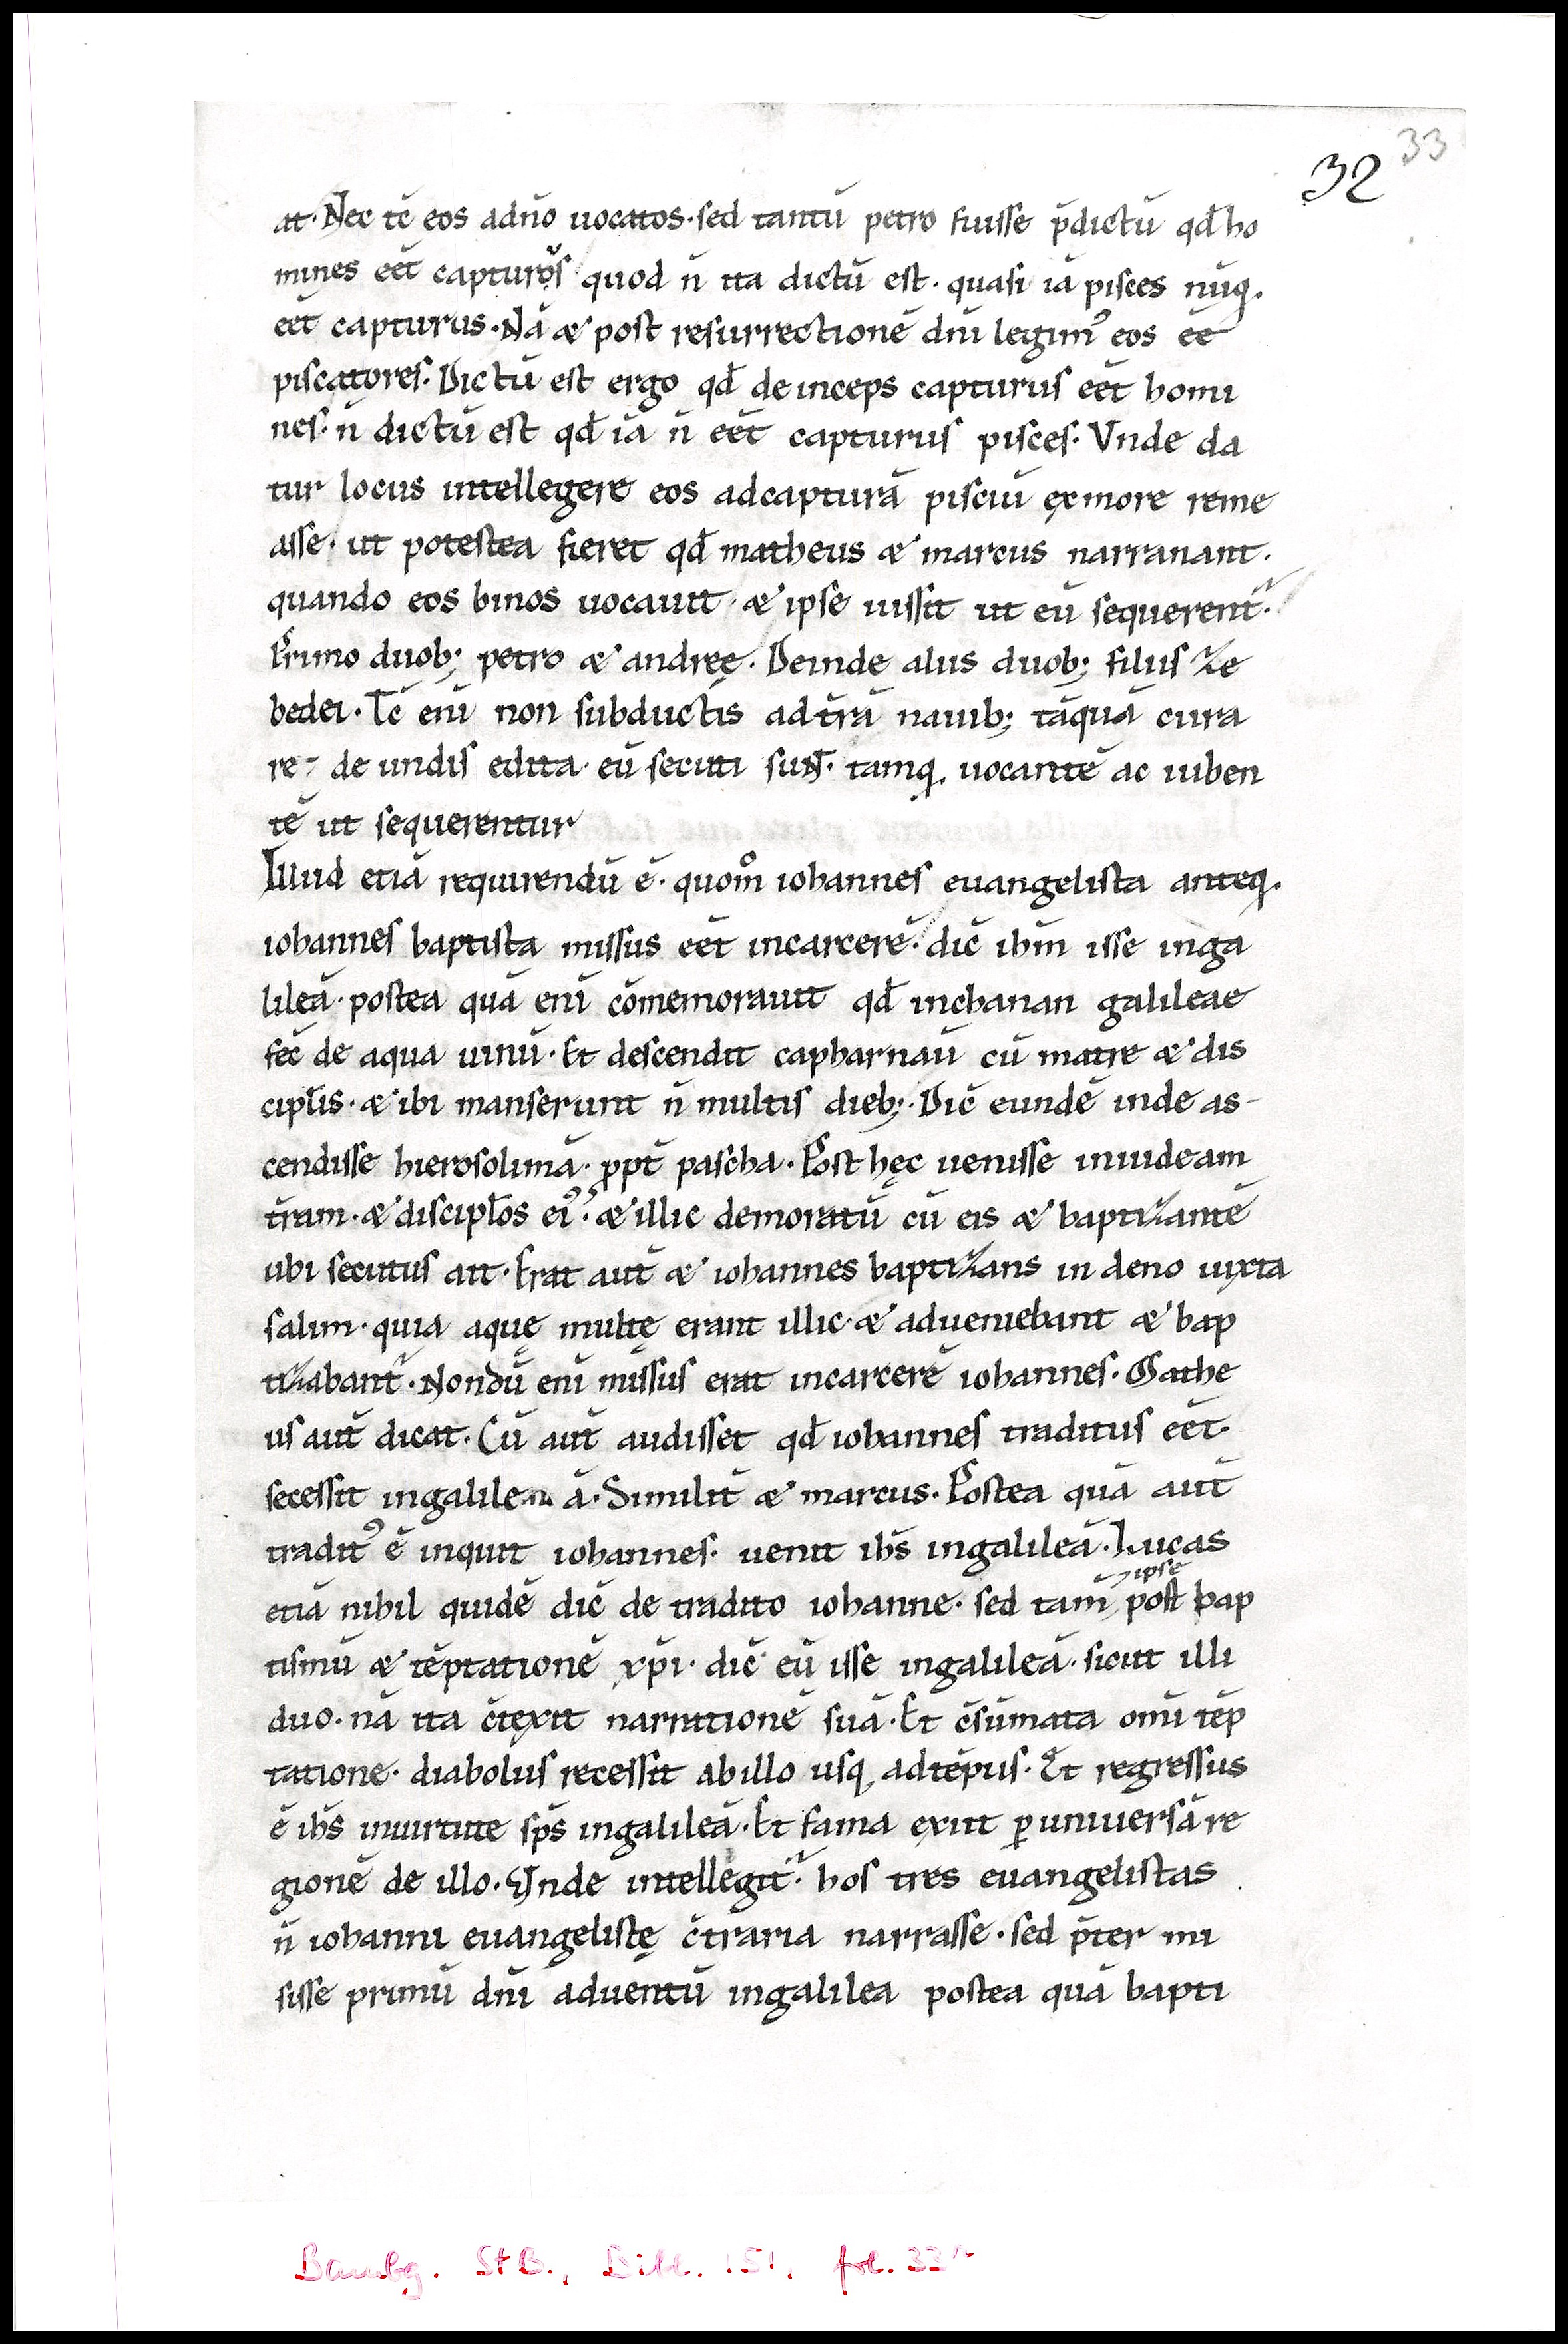 33
32
at· Nec tc̄ eos adn̄o uocatos· sed tantū petro fuisse p̄dictū qđ ho
mines eēt capturos quod n̄ ita dictū est· quasi iā pisces nūq·
eēt capturus· Nā æ post resurrectionē dn̄i legim᾽ eos eē
piscatores· Dictū est ergo qđ deinceps capturus eēt homi
nes· n̄ dictū est qđ iā n̄ eēt capturus pisces· Vnde da
tur locus intellegere eos adcapturā pisciū exmore reme
asse· ut potestea fieret qđ matheus æ marcus narranant·
quando eos binos uocauit· æ ipse iussit ut eū sequerent᷑·
Primo duob; petro æ andreę· Deinde aliis duob; filiis ze
bedei· Tc̄ eni̅ non subductis adt̄rā nauib; tāquā cura
re· de undis edita· eū secuti sunt̄· tamq· uocantē ac iuben
tē ut sequerentur
Illud etiā requirendū ē· quom̊ iohannes euangelista anteq·
iohannes baptista missus eēt incarcerē· dic̄ ibm̄ isse inga
lileā· postea quā eni̅ cōmemorauit qđ inchanan galileae
fec̄ de aqua uinū· Et descendit capharnaū cū matre æ dis
cipl̄is· æ ibi manserunt n̄ multis dieb;· Dic̄ eundē inde as-
cendisse hierosolimā· ppt̄ pascha· Post hęc uenisse iniudeam
t̄ram· æ discipl̄os ei᾽· æ illic demoratū cū eis æ baptizantē
ubi secutus ait· Erat aut̄ æ iohannes baptizans in deno iuxta
salim· quia aquę multę erant illic· æ adueniebant æ bap
tizabant᷑· Nondū eni̅ missus erat incarcerē iohannes· Mathe
us aut̄ dicat· Cū aut̄ audisset qđ iohannes traditus eēt·
secessit ingalile ā· Similit̄ æ marcus· Postea quā aut̄
tradit᾽ ē inquit iohannes· uenit ihs̄ ingalileā· Lucas
etiā nihil quidē dic̄ de tradito iohanne· sed tam̄ ipse post bap
tismū æ tēptationē xp̄i· dic̄ eū isse ingalileā· sicut illi
duo· nā ita c̄texit narrationē suā· Et c̄sūmata omi̅ tēp
tatione· diabolus recessit abillo usq· adtēpus· Et regressus
ē ihs̄ inuirtute sp̄s ingalileā· Et fama exiit ꝑ uniuersā re
gionē de illo· Vnde intellegit᷑· hos tres euangelistas
n̄ iohanni euangelistę c̄traria narrasse· sed p̄ter mi
sisse primū dn̄i aduentū ingalilea postea quā bapti
Bambg. StB., Bibl. 151, fol. 33r